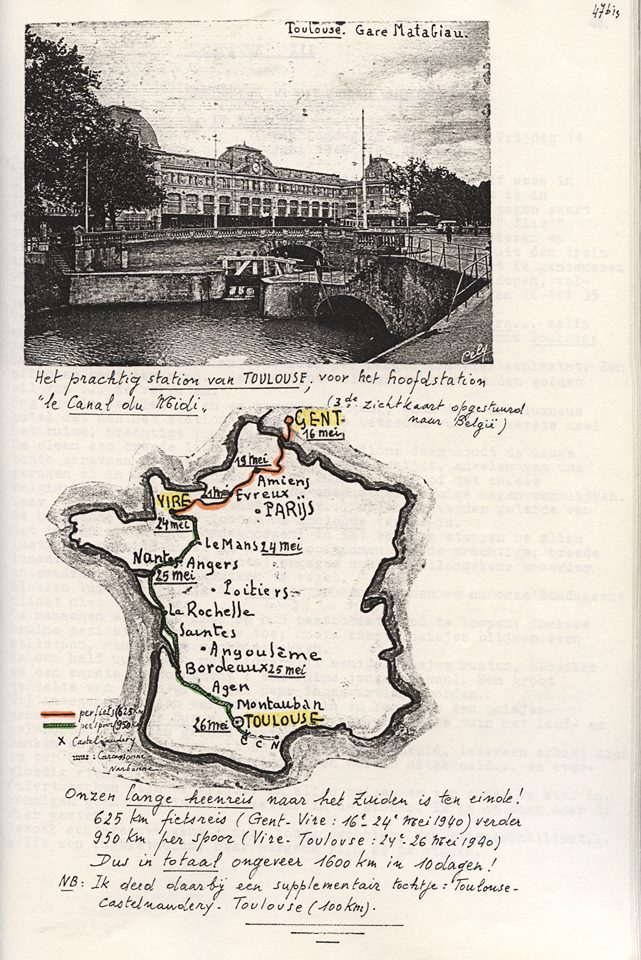 47bis
Toulouse. Gare Matabiau.
Cely
Het prachtig station van TOULOUSE, voor het hoofdstation
"le Canal du Midi„
(3de zichtkaart opgestuurd
naar België)
GENT
16 mei
19 mei
Amiens
21 mei
Evreux
PARIJS
VIRE
24 mei
Le Mans 24 mei
Nantes Angers
25 mei
Poitiers
La Rochelle
Saintes
Angoulême
Bordeaux 25 mei
Agen
Montauban
26 mei
TOULOUSE
C C N
per fiets (625
per spoor (950 km)
X Castelnaudary
Carcassonne
Narbonne
Onzen lange heenreis naar het Zuiden is ten einde!
625 km fietsreis (Gent-Vire: 16e 24e mei 1940) verder
950 km per spoor (Vire-Toulouse: 24e-26 mei 1940)
Dus in totaal ongeveer 1600 km in 10 dagen!
NB: Ik deed daarbij een supplementair tochtje: Toulouse-
Castelnaudery. Toulouse (100 km).